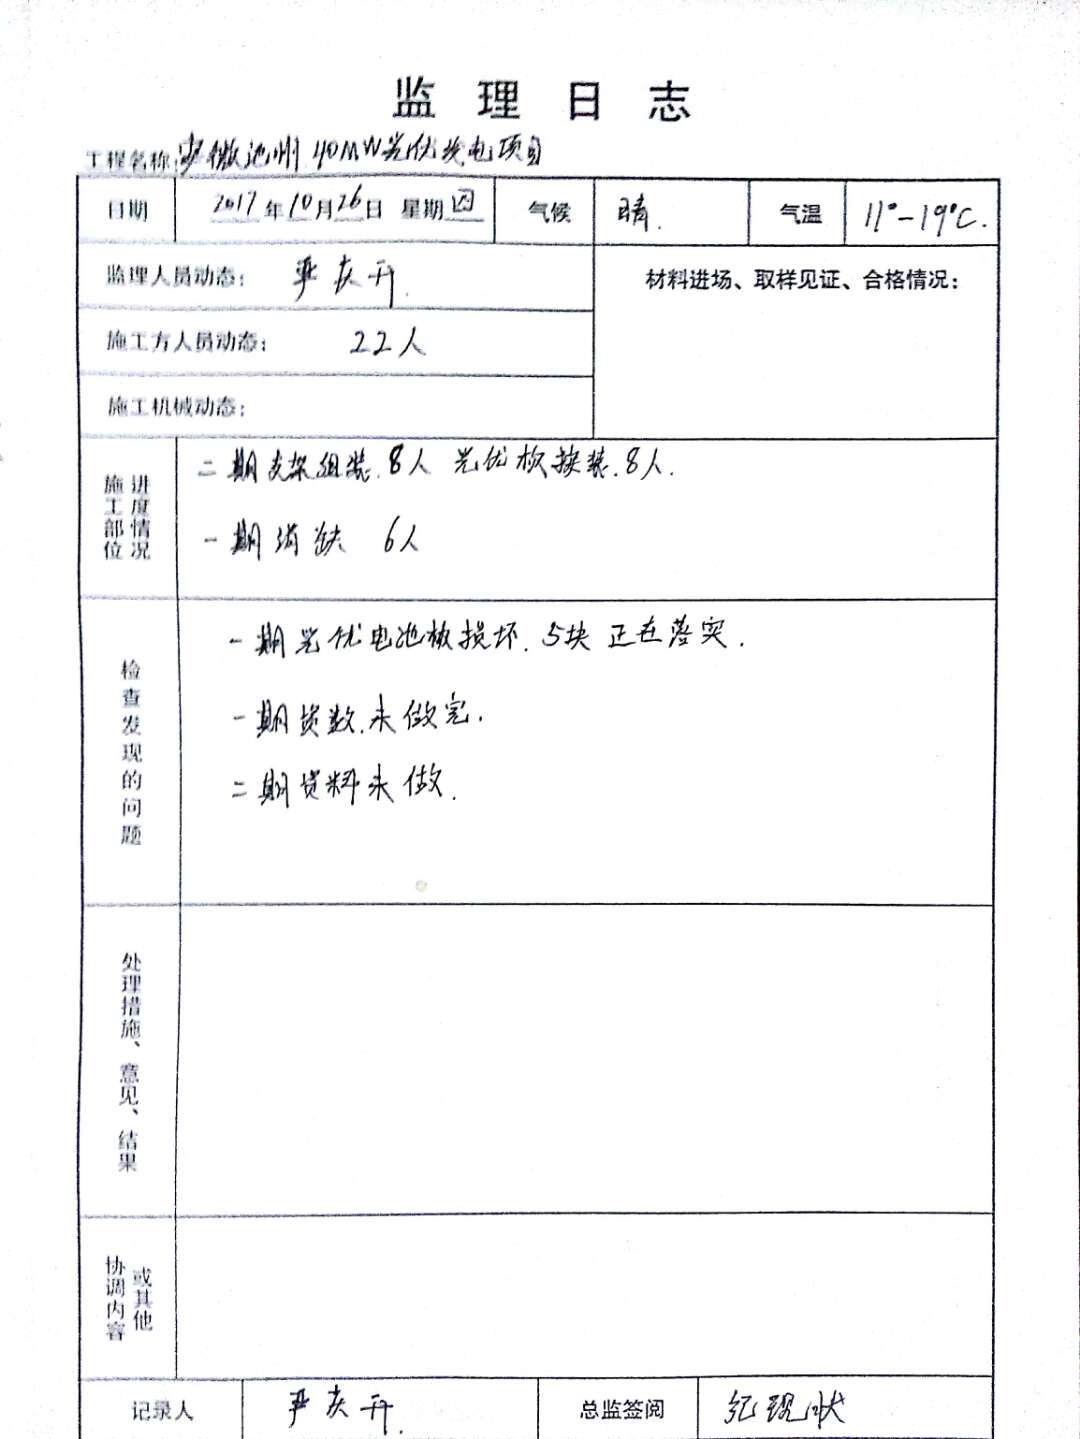 监理日志
工程名称:安徽池州40MW光伏发电项目
日期 2017年10月26日 星期四 气候 晴. 气温 11°-19℃.
监理人员动态: 严庆升.
材料进场、取样见证、合格情况:
施工方人员动态: 22人
施工机械动态:
施工部位 进度情况
二期支架组装.8人 光伏板换装.8人.
一期消缺 6人
检查发现的问题
一期光伏电池板损坏.5块 正在落实.
一期 未做完.
二期资料未做.
处理措施、意见、结果
协调内容 或其他
记录人 严庆升. 总监签阅